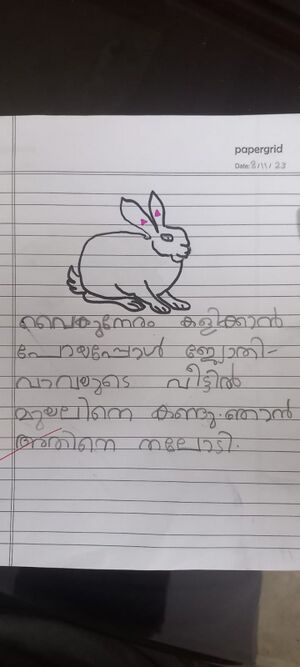 papergrid
Date: 8/11/23
വൈകുന്നേരം കളിക്കാൻ
പോയപ്പോൾ ജ്യോതി-
വാവയുടെ വീട്ടിൽ
മുയലിനെ കണ്ടു. ഞാൻ
അതിനെ തലോടി.